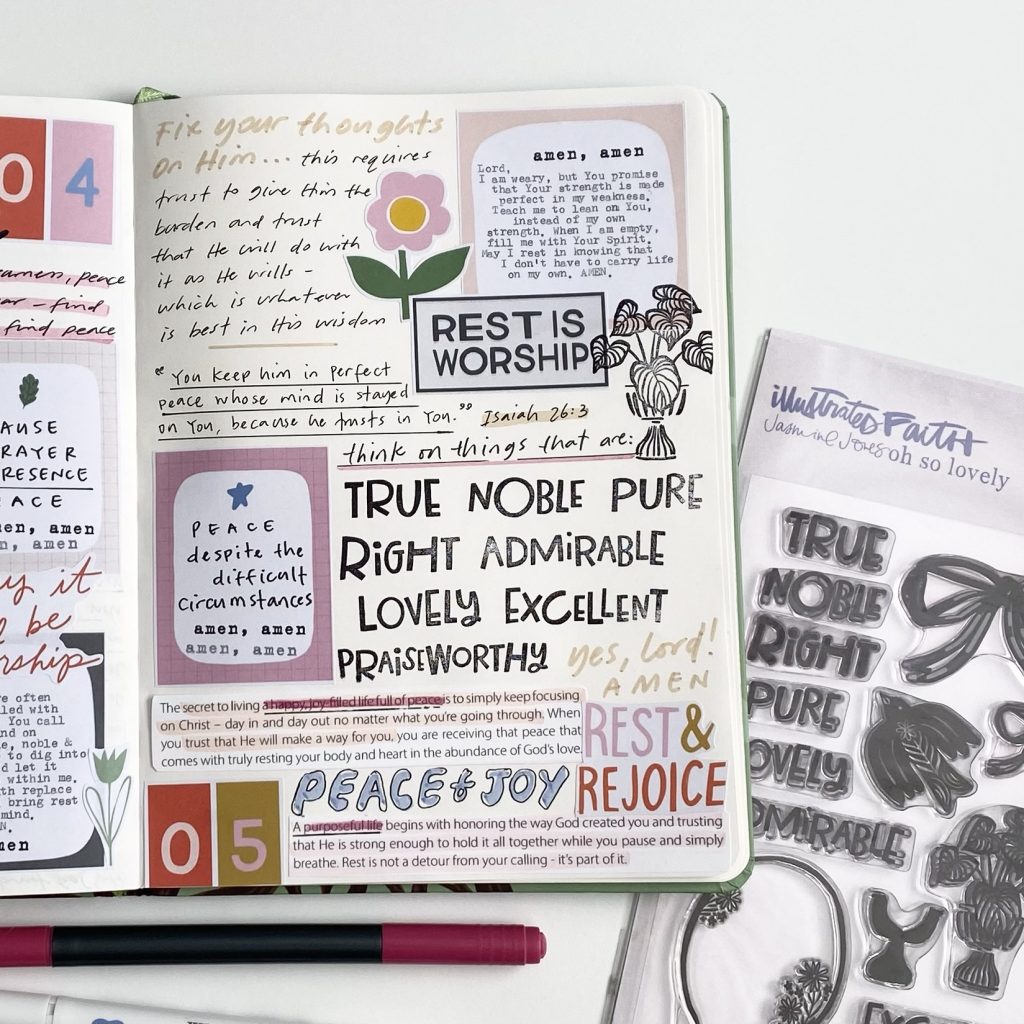 04
earness, peace
find
find peace
AUSE
RAYER
RESENCE
EACE
en, amen
en, amen
y it
be
rship
re often
led with
You call
nd on
e, noble &
e to dig into
d let it
within me.
th replace
bring rest
mind.
N.
men
Fix your thoughts
on Him... this requires
trust to give Him the
burden and trust
that He will do with
it as He wills -
which is whatever
is best in His wisdom
amen, amen
Lord,
I am weary, but You promise
that Your strength is made
perfect in my weakness.
Teach me to lean on You,
instead of my own
strength. When I am empty,
fill me with Your Spirit.
May I rest in knowing that
I don't have to carry life
on my own. AMEN.
REST IS
WORSHIP
"You keep him in perfect
peace whose mind is stayed
on You, because he trusts in You." Isaiah 26:3
think on things that are:
TRUE NOBLE PURE
RiGHT ADMiRABLE
LOVELY EXCELLENT
PRAiSEWORTHY
yes, Lord!
AMEN
PEACE
despite the
difficult
circumstances
amen, amen
amen, amen
The secret to living a happy, joy filled life full of peace is to simply keep focusing
on Christ – day in and day out no matter what you're going through. When
you trust that He will make a way for you, you are receiving that peace that
comes with truly resting your body and heart in the abundance of God's love.
REST &
REJOICE
05
PEACE & JOY
A purposeful life begins with honoring the way God created you and trusting
that He is strong enough to hold it all together while you pause and simply
breathe. Rest is not a detour from your calling - it's part of it.
illustrated FAitH
Jasmine Jones oh so lovely
TRUE
NOBLE
RiGHT
PURE
LOVELY
ADMiRABLE